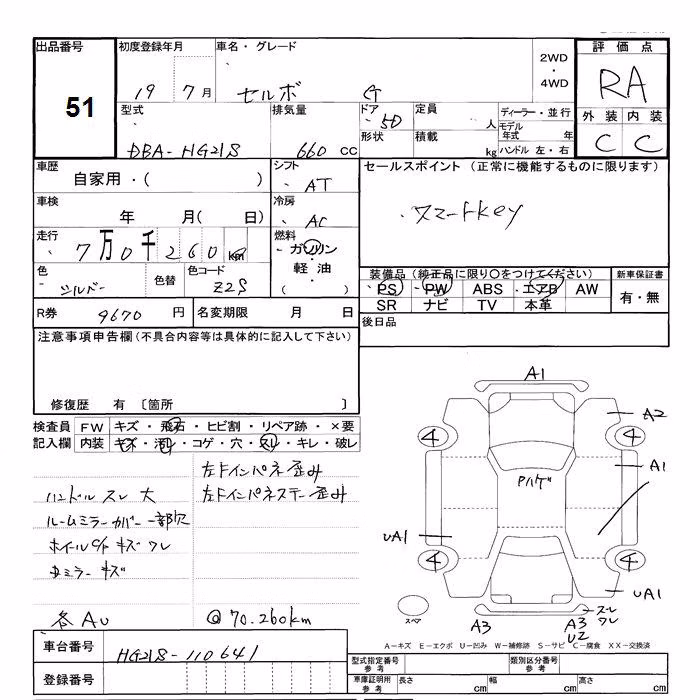 出品番号
51
初度登録年月
19 7月
車名・グレード
セルボ G
2WD
・
4WD
評価点
RA
外装 内装
C C
型式
DBA-HG21S
排気量
660 cc
ドア
・5D
形状
定員
人
積載
kg
ディーラー・並行
モデル
年式 年
ハンドル 左・右
車歴
自家用・( )
シフト
・AT
セールスポイント (正常に機能するものに限ります)
・スマートkey
車検
年 月( 日)
冷房
・AC
走行
7万0千260km
燃料
ガソリン
・
軽油
( )
色
シルバー
色替
色コード
Z2S
装備品(純正品に限り○をつけてください)
PS PW ABS エアB AW
SR ナビ TV 本革
新車保証書
有・無
R券 9670 円
名変期限 月 日
後日品
注意事項申告欄(不具合内容等は具体的に記入して下さい)
修復歴 有 〔箇所 〕
検査員
記入欄
FW キズ・飛石・ヒビ割・リペア跡・×要
内装 キズ・汚レ・コゲ・穴・スレ・キレ・破レ
左Fインパネ歪み
左Fインパネステー歪み
ハンドル スレ 大
ルームミラーカバー 一部欠
ホイールC/P キズ ワレ
ミラー キズ
各AU
@70.260km
A1
4 4
A2
A1
Pハゲ
UA1
4 4
UA1
スペア
A3
A3 スレ
ワレ
UZ
A-キズ E-エクボ U-凹み W-補修跡 S-サビ C-腐食 XX-交換済
車台番号
HG21S-110641
登録番号
型式指定番号
参考
類別区分番号
参考
車庫証明用
参考
長さ cm
幅 cm
高さ cm